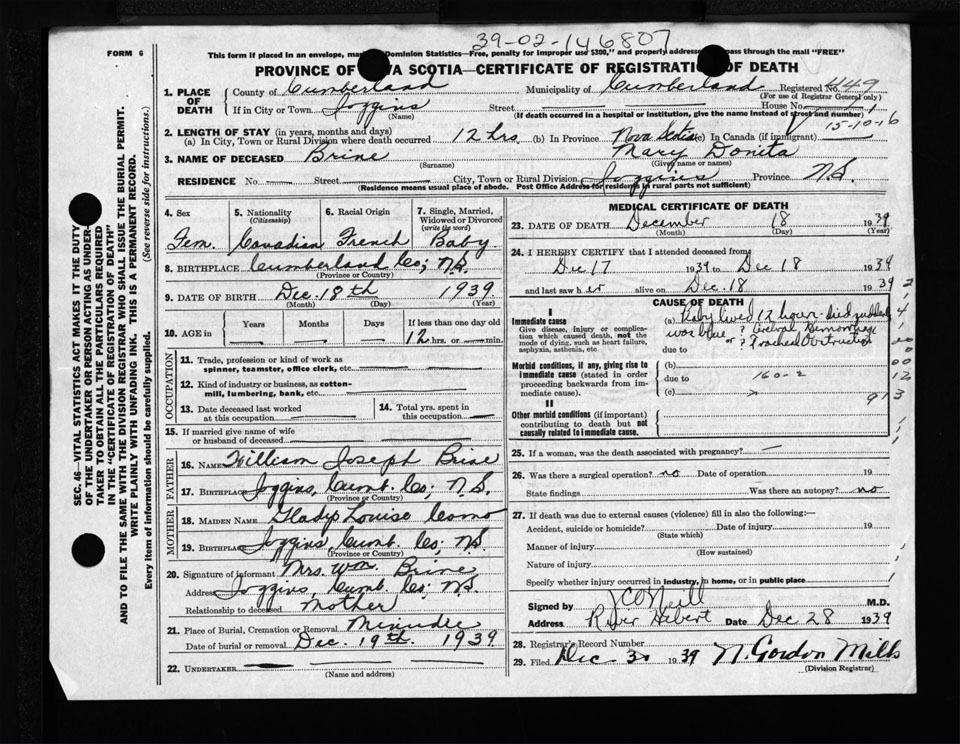 39-02-146807
FORM 6
This form if placed in an envelope, Dominion Statistics—Free, penalty for improper use $300," and properly addressed pass through the mail "FREE"
PROVINCE OF VA SCOTIA—CERTIFICATE OF REGISTRATION OF DEATH
1. PLACE OF DEATH
County of Cumberland Municipality of Cumberland Registered No. 449
(For use of Registrar General only)
If in City or Town Joggins Street House No.
(Name) (If death occurred in a hospital or institution, give the name instead of street and number)
15-10-16
2. LENGTH OF STAY (in years, months and days)
(a) In City, Town or Rural Division where death occurred 12 hrs. (b) In Province Nova Scotia (c) In Canada (if immigrant)
3. NAME OF DECEASED Brine Mary Donita
(Surname) (Given name or names)
RESIDENCE No. Street City, Town or Rural Division Joggins Province N.S.
(Residence means usual place of abode. Post Office Address for residents in rural parts not sufficient)
4. Sex Fem.
5. Nationality (Citizenship) Canadian
6. Racial Origin French
7. Single, Married, Widowed or Divorced (write the word) Baby
8. BIRTHPLACE Cumberland Co; N.S.
(Province or Country)
9. DATE OF BIRTH Dec. 18th 1939
(Month) (Day) (Year)
10. AGE in Years Months Days If less than one day old
12 hrs. or min.
OCCUPATION
11. Trade, profession or kind of work as spinner, teamster, office clerk, etc.
12. Kind of industry or business, as cotton-mill, lumbering, bank, etc.
13. Date deceased last worked at this occupation
14. Total yrs. spent in this occupation
15. If married give name of wife or husband of deceased
FATHER
16. Name Willison Joseph Brine
17. Birthplace Joggins, Cumb. Co; N.S.
(Province or Country)
MOTHER
18. Maiden Name Gladys Louise Como
19. Birthplace Joggins, Cumb. Co; N.S.
(Province or Country)
20. Signature of informant Mrs. Wm. Brine
Address Joggins, Cumb. Co; N.S.
Relationship to deceased Mother
21. Place of Burial, Cremation or Removal Minudie
Date of burial or removal Dec. 19th. 1939
22. UNDERTAKER
(Name and address)
MEDICAL CERTIFICATE OF DEATH
23. DATE OF DEATH December 18 1939
(Month) (Day) (Year)
24. I HEREBY CERTIFY that I attended deceased from
Dec 17 1939 to Dec 18 1939
and last saw her alive on Dec. 18 1939
CAUSE OF DEATH
I
Immediate cause
Give disease, injury or complication which caused death, not the mode of dying, such as heart failure, asphyxia, asthenia, etc.
(a) Baby lived 12 hours - died suddenly
was blue ? Cerebral Hemorrhage
or ? Tracheal Obstruction
due to
Morbid conditions, if any, giving rise to immediate cause (stated in order proceeding backwards from immediate cause).
(b)
due to 160-2
(c)
II
Other morbid conditions (if important) contributing to death but not causally related to immediate cause.
25. If a woman, was the death associated with pregnancy?
26. Was there a surgical operation? no Date of operation 19
State findings Was there an autopsy? no
27. If death was due to external causes (violence) fill in also the following:—
Accident, suicide or homicide? Date of injury 19
(State which)
Manner of injury
(How sustained)
Nature of injury
Specify whether injury occurred in industry, in home, or in public place
Signed by M.D.
Address River Hebert Date Dec 28 1939
28. Registrar's Record Number
29. Filed Dec 30 1939 N. Gordon Mills
(Division Registrar)
SEC. 46—VITAL STATISTICS ACT MAKES IT THE DUTY
OF THE UNDERTAKER OR PERSON ACTING AS UNDERTAKER
TO OBTAIN ALL THE PARTICULARS REQUIRED
IN THE "CERTIFICATE OF REGISTRATION OF DEATH"
AND TO FILE THE SAME WITH THE DIVISION REGISTRAR WHO SHALL ISSUE THE BURIAL PERMIT.
WRITE PLAINLY WITH UNFADING INK. THIS IS A PERMANENT RECORD.
Every item of information should be carefully supplied. (See reverse side for instructions.)